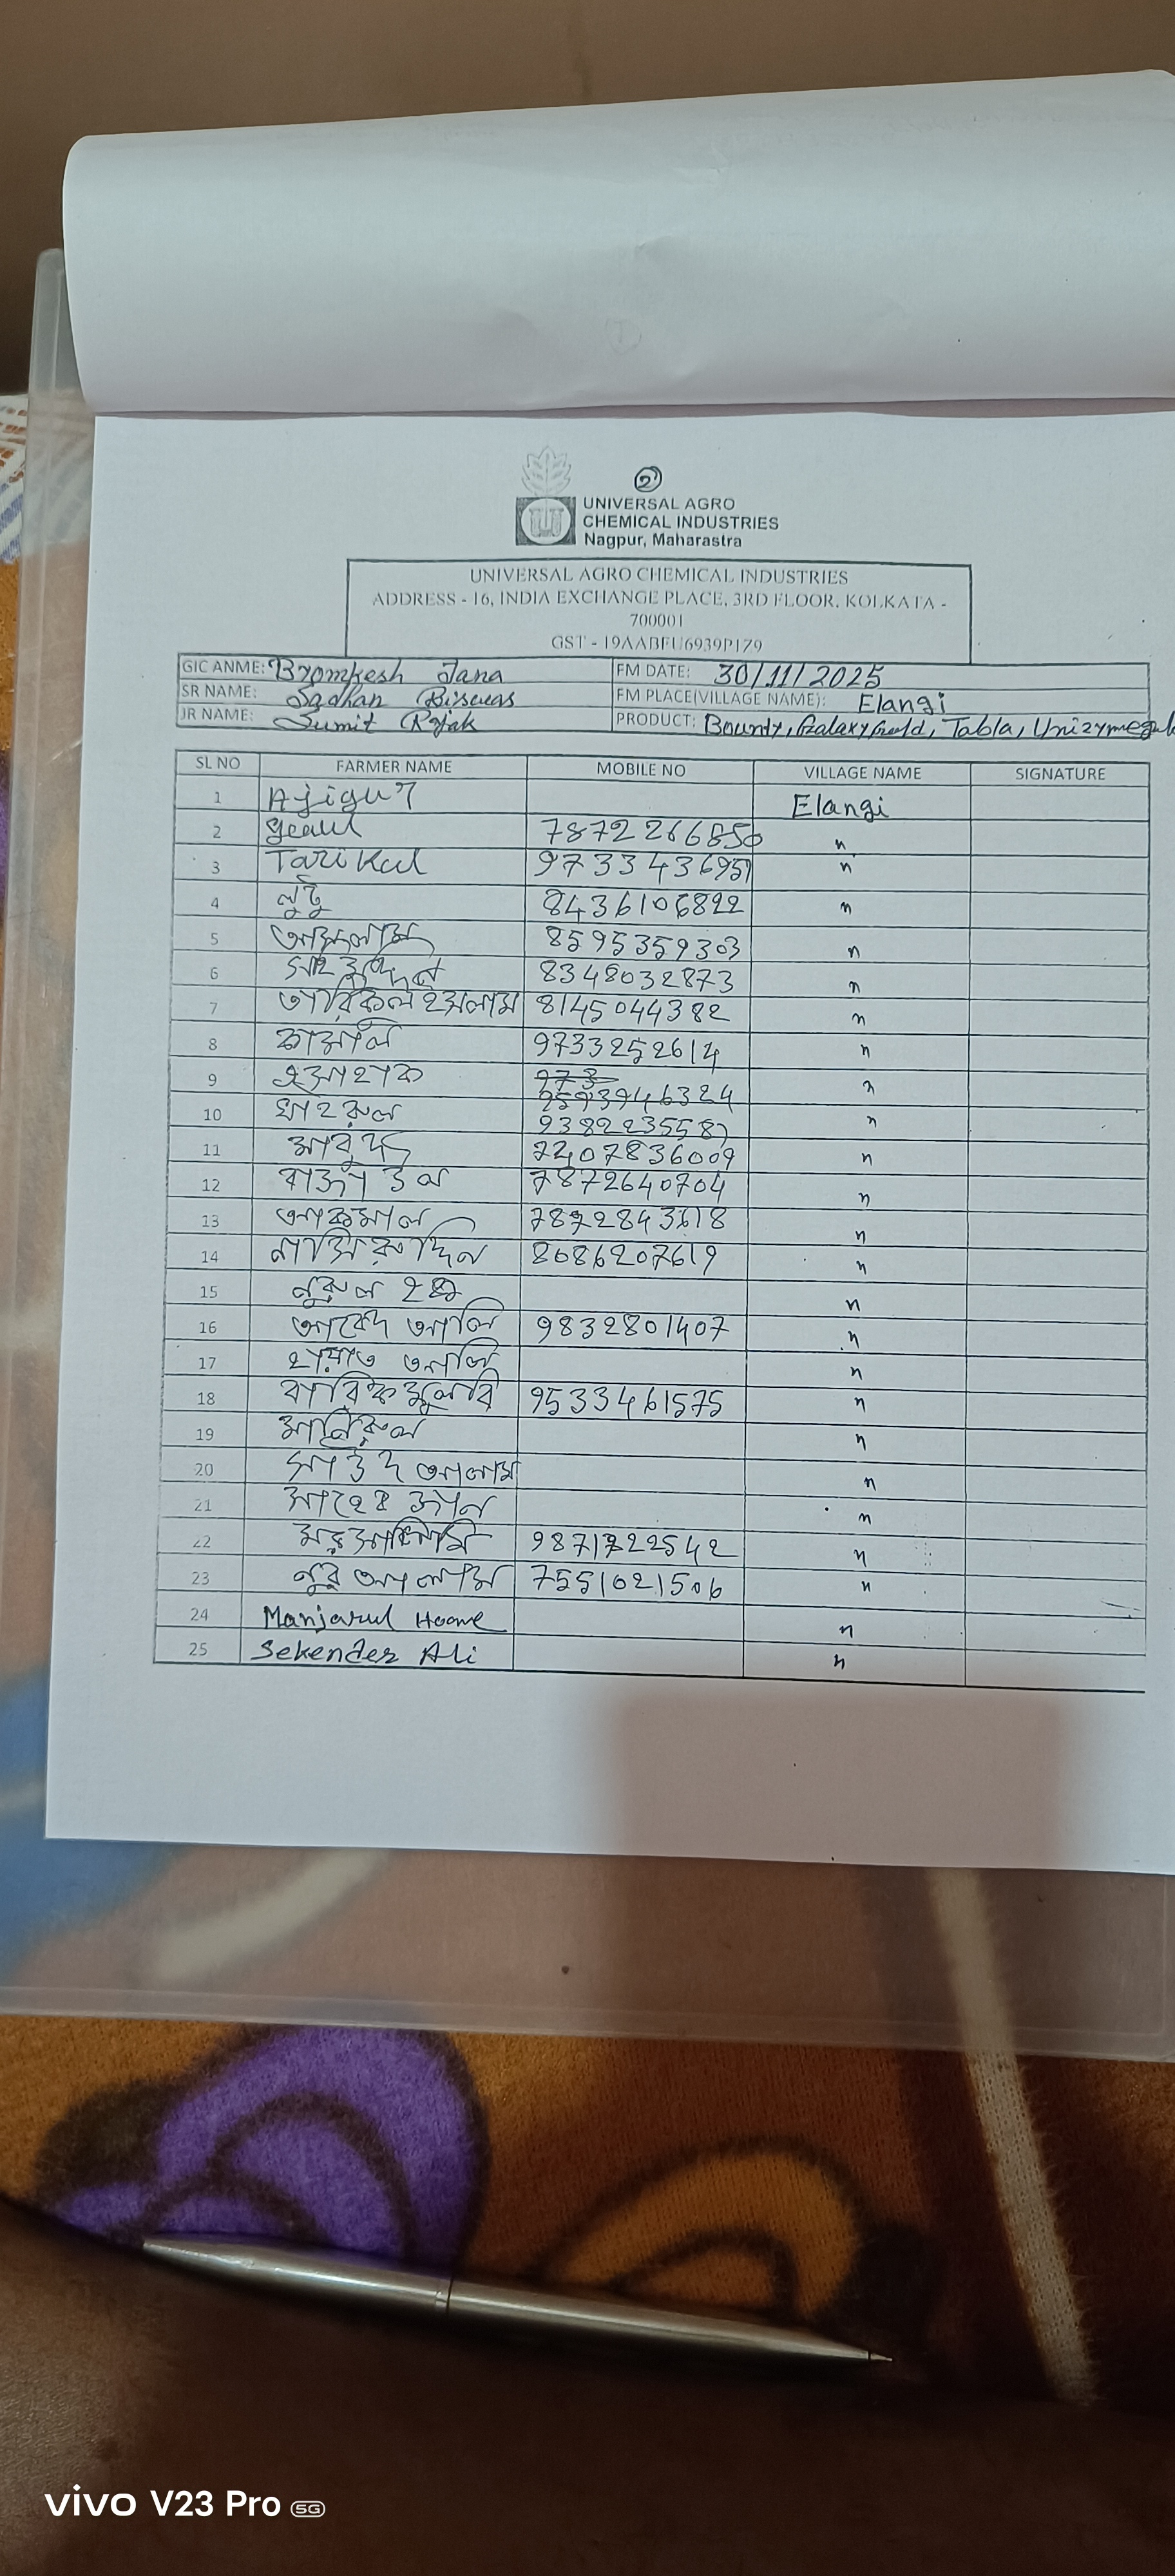 2
UNIVERSAL AGRO
CHEMICAL INDUSTRIES
Nagpur, Maharastra
UNIVERSAL AGRO CHEMICAL INDUSTRIES
ADDRESS - 16, INDIA EXCHANGE PLACE, 3RD FLOOR, KOLKATA -
700001
GST - 19AABFU6939P1Z9
GIC ANME: Bromkesh Jana FM DATE: 30/11/2025
SR NAME: Sadhan Biswas FM PLACE(VILLAGE NAME): Elangi
JR NAME: Sumit Rajak PRODUCT: Bounty, Galaxy Gold, Tabla,
SL NO FARMER NAME MOBILE NO VILLAGE NAME SIGNATURE
1 Ajigur Elangi
2 7872266850 "
3 Tarikul 9733436957 "
4 লুটু 8436106822 "
5 8595359303 "
6 8348032873 "
7 তারিকুল ইসলাম 8145044382 "
8 কামাল 9733252614 "
9 ইসাহাক 9593946324 "
10 9382235587 "
11 "
12 7872640704 "
13 আকমাল "
14 নাসিরুদ্দিন 8686207619 "
15 নুরুল হক "
16 আবেদ আলি 9832801407 "
17 হায়াত আলি "
18 9533461575 "
19 মনিরুল "
20 "
21 "
22 "
23 নুর আলাম 7551021506 "
24 Manjarul "
25 Sekender Ali "
vivo V23 Pro 5G